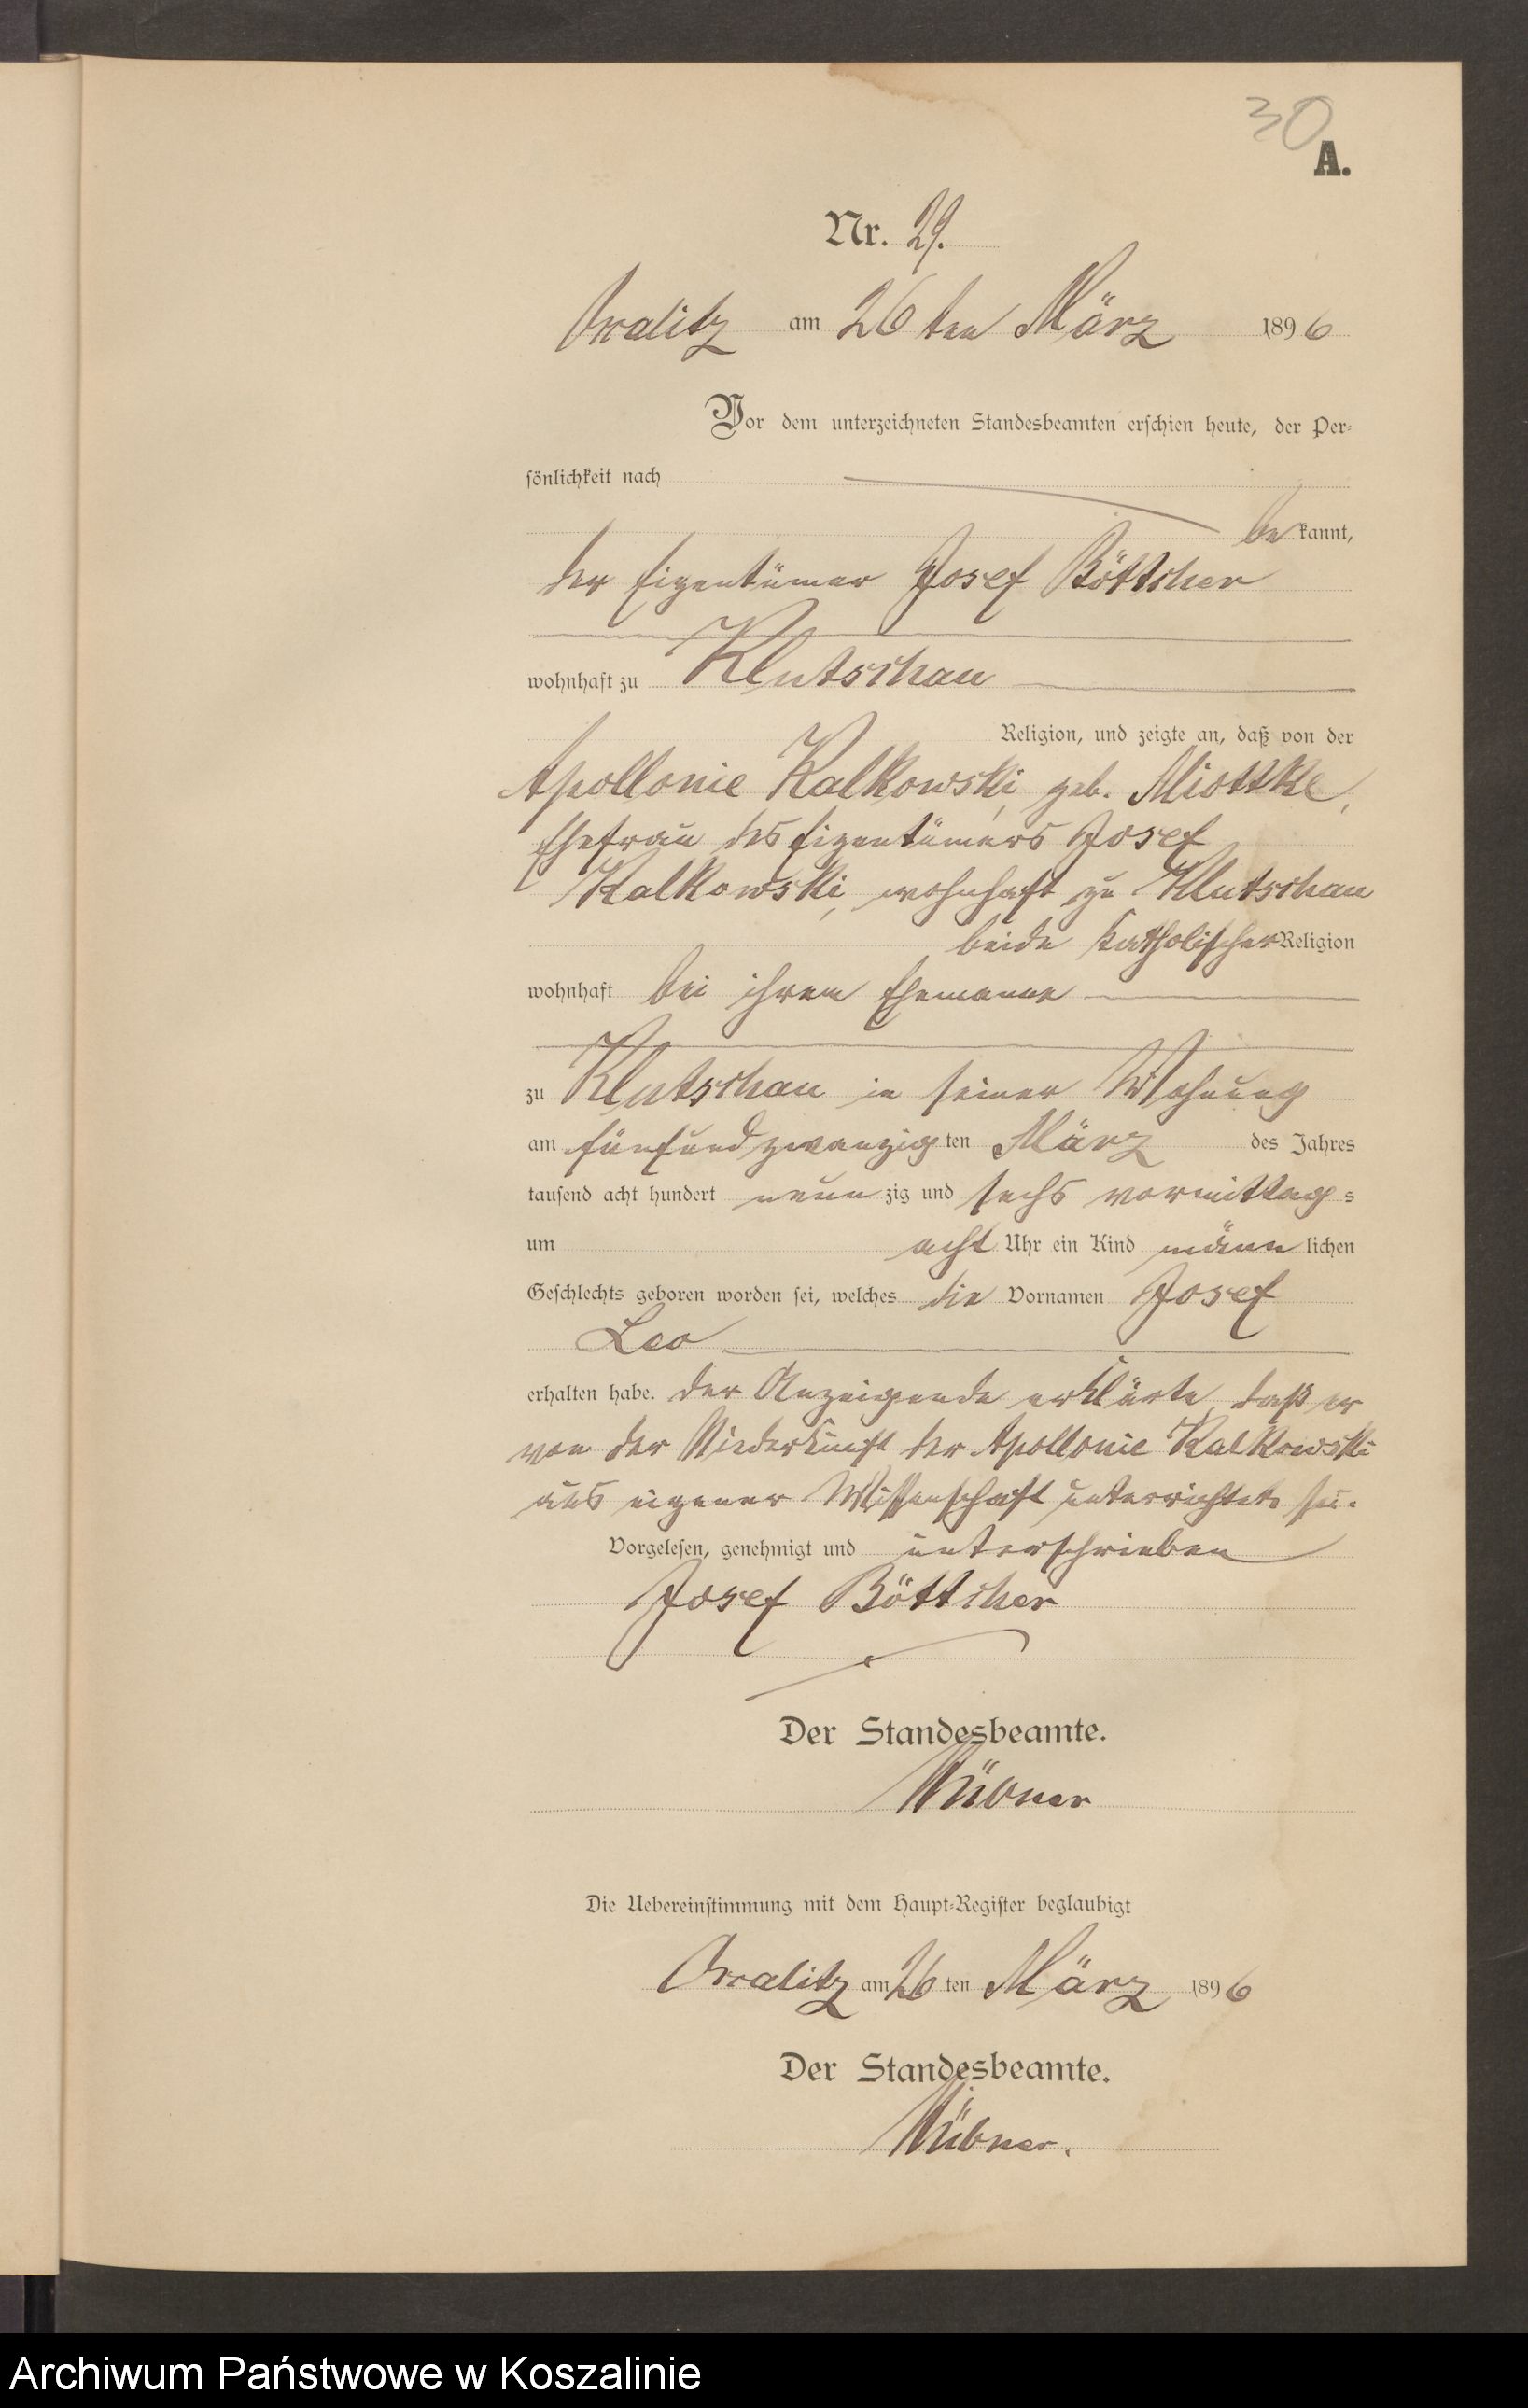 30
A.
Nr. 29.
am 26 ten März 1896
Vor dem unterzeichneten Standesbeamten erschien heute, der Per-
sönlichkeit nach
be kannt,
der Eigentümer Josef Böttcher
wohnhaft zu Klutschau
Religion, und zeigte an, daß von der
Apollonie Kalkowski, geb. Miottke,
Ehefrau des Eigentümers Josef
Kalkowski, wohnhaft zu Klutschau
beide katholischer Religion
wohnhaft bei ihrem Ehemanne
zu Klutschau in seiner Wohnung
am fünfundzwanzig ten März des Jahres
tausend acht hundert neun zig und sechs vormittag s
um acht Uhr ein Kind männ lichen
Geschlechts geboren worden sei, welches die Vornamen Josef
Leo
erhalten habe. Der Anzeigende erklärte, daß er
von der Niederkunft der Apollonie Kalkowski
aus eigener Wissenschaft unterrichtet sei.
Vorgelesen, genehmigt und unterschrieben
Josef Böttcher
Der Standesbeamte.
Die Uebereinstimmung mit dem Haupt-Register beglaubigt
am 26 ten März 1896
Der Standesbeamte.
Archiwum Państwowe w Koszalinie